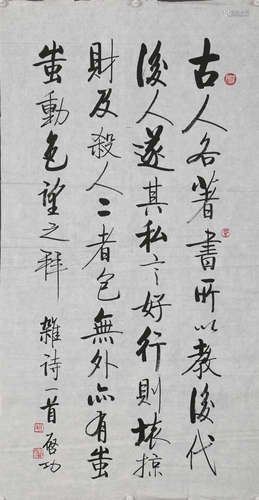 古人各著書所以教後代
後人遂其私言好行則壞掠
財及殺人二者包無外亦有蚩
蚩動色望之拜 雜詩一首 啓功